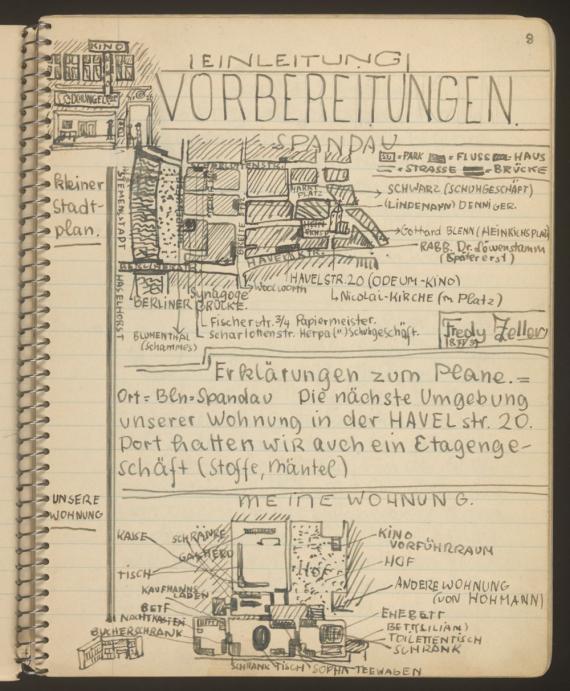 8
KINO
EINLEITUNG
VORBEREITUNGEN.
SPANDAU
= PARK = FLUSS = HAUS
= STRASSE = BRÜCKE
kleiner
Stadt-
plan.
SIEMENSTADT
HASELHORST
MARKT
PLATZ
HAVELSTR.
SCHWARZ (SCHUHGESCHÄFT)
(LINDEMANN) DENNIGER.
Gotthard BLENN (HEINRICHSPLATZ)
RABB. Dr. Löwenstamm
(Später erst)
HAVELSTR. 20 (ODEUM-KINO)
Nicolai-KIRCHE (m Platz)
Woolworth
Synagoge
BERLINER BRÜCKE.
Fischerstr. 3/4 Papiermeister.
Scharlottenstr. Herpa (") Schuhgeschäft.
BLUMENTHAL
(Schammes)
Fredy Zeller
Erklärungen zum Plane.=
Ort= Bln=Spandau Die nächste Umgebung
unserer Wohnung in der HAVELstr. 20.
Dort hatten wir auch ein Etagenge-
schäft (Stoffe, Mäntel)
UNSERE
WOHNUNG
MEINE WOHNUNG.
KASSE
SCHRÄNKE
GASHERD
TISCH
KAUFMANNS
LADEN
BETT
NACHTKASTEN
BÜCHERSCHRANK
HOF
KINO
VORFÜHRRAUM
HOF
ANDERE WOHNUNG
(VON HOHMANN)
EHEBETT
BETT (LILIAN)
TOILETTENTISCH
SCHRANK
SCHRANK TISCH SOPHA TEEWAGEN